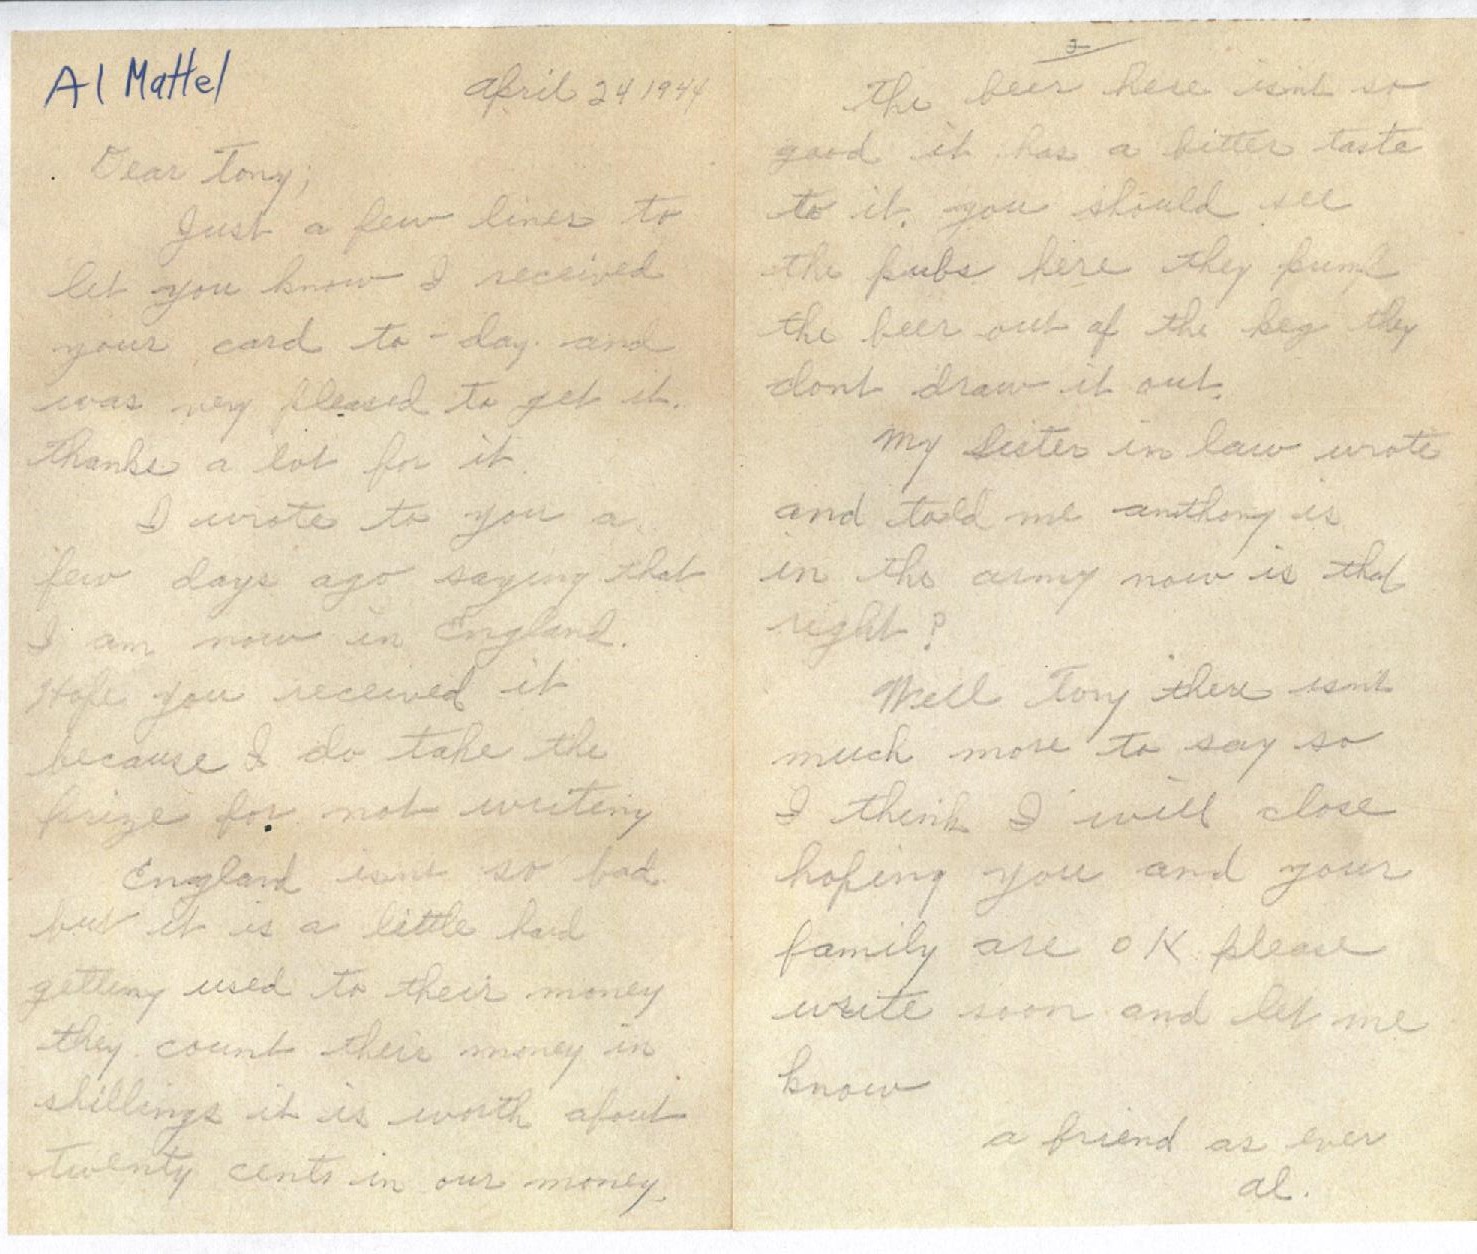 Al Mattel
April 24 1944
Dear Tony;
Just a few lines to
let you know I received
your card to-day. and
was very pleased to get it.
thanks a lot for it.
I wrote to you a
few days ago saying that
I am now in England.
Hope you received it
because I do take the
prize for not writing
England isnt so bad.
but it is a little hard
getting used to their money
they count their money in
shillings it is worth about
twenty cents in our money.
2
The beer here isnt so
good it has a bitter taste
to it. you should see
the pubs here they pump
the beer out of the keg they
dont draw it out.
My sister in law wrote
and told me anthony is
in the army now is that
right?
Well Tony there isnt
much more to say so
I think I will close
hoping you and your
family are OK please
write soon and let me
know
a friend as ever
al.